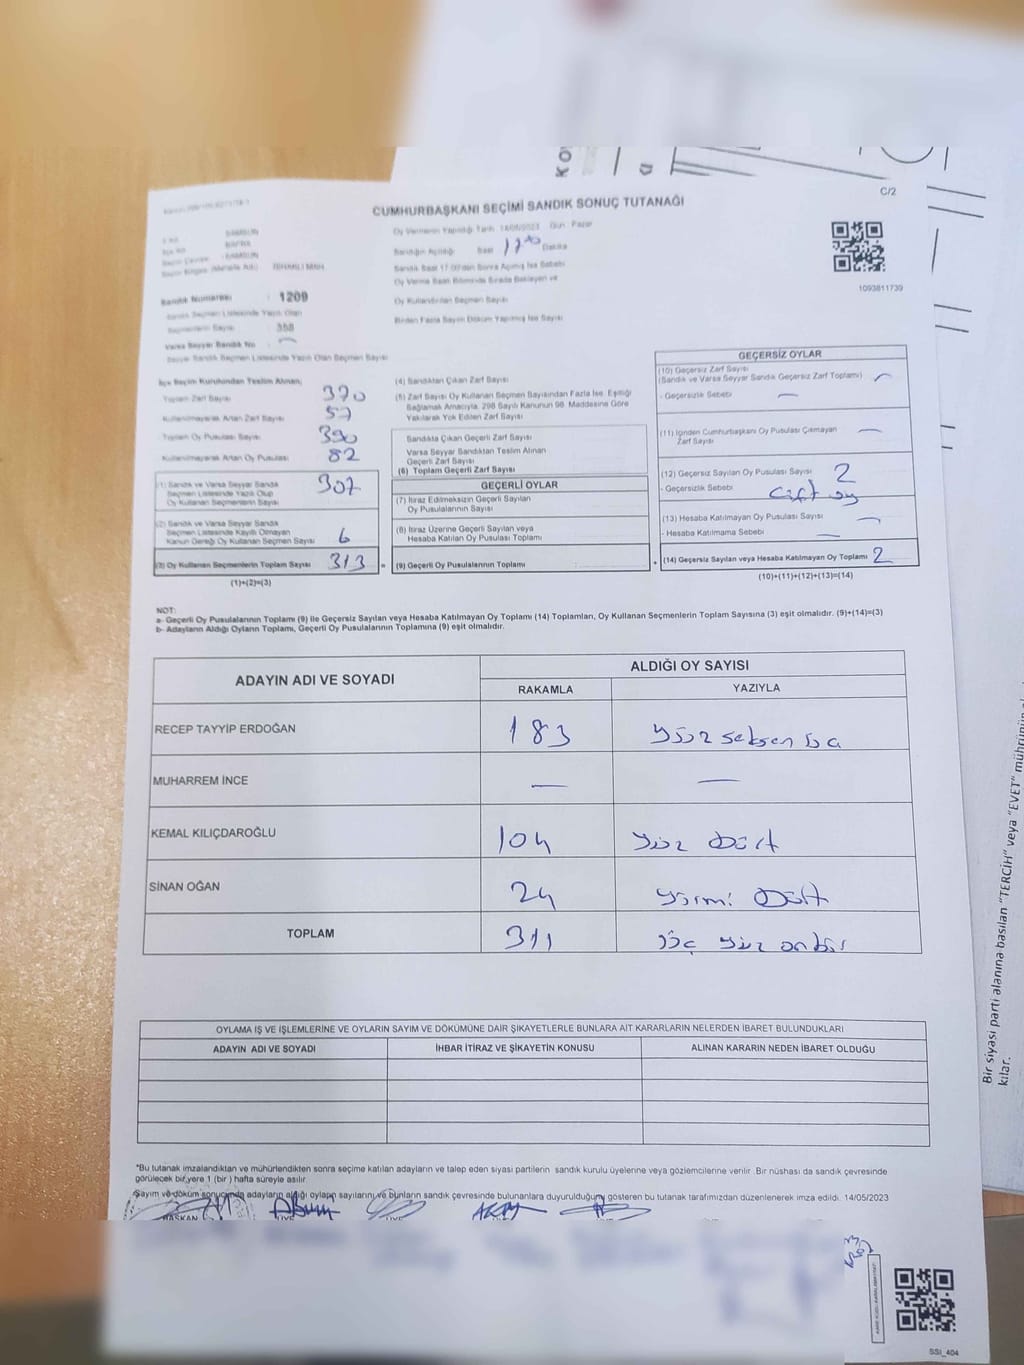 C/2
CUMHURBAŞKANI SEÇİMİ SANDIK SONUÇ TUTANAĞI
Oy Vermenin Yapıldığı Tarih 14/05/2023 Gün Pazar
SAMSUN
BAFRA
SAMSUN
Sandığın Açıldığı Saat 17 00 Dakika
Sandık Saat 17:00'den Sonra Açılmış İse Sebebi
Oy Verme Saat Bitiminde Sırada Bekleyen ve
1093811739
Sandık Numarası : 1209
Oy Kullandırılan Seçmen Sayısı
Sandık Seçmen Listesinde Yazılı Olan
Seçmenlerin Sayısı : 358
Birden Fazla Sayım Döküm Yapılmış İse Sayısı
Varsa Seyyar Sandık No : —
Seyyar Sandık Seçmen Listesinde Yazılı Olan Seçmen Sayısı
İlçe Seçim Kurulundan Teslim Alınan;
Toplam Zarf Sayısı 370
Kullanılmayarak Artan Zarf Sayısı 57
Toplam Oy Pusulası Sayısı 390
Kullanılmayarak Artan Oy Pusulası 82
(1) Sandık ve Varsa Seyyar Sandık
Seçmen Listesinde Yazılı Olup
Oy Kullanan Seçmenlerin Sayısı 307
(2) Sandık ve Varsa Seyyar Sandık
Seçmen Listesinde Kayıtlı Olmayan
Kanun Gereği Oy Kullanan Seçmen Sayısı 6
(3) Oy Kullanan Seçmenlerin Toplam Sayısı 313 =
(1)+(2)=(3)
(4) Sandıktan Çıkan Zarf Sayısı
(5) Zarf Sayısı Oy Kullanan Seçmen Sayısından Fazla İse, Eşitliği
Sağlamak Amacıyla, 298 Sayılı Kanunun 98. Maddesine Göre
Yakılarak Yok Edilen Zarf Sayısı
Sandıkta Çıkan Geçerli Zarf Sayısı
Varsa Seyyar Sandıktan Teslim Alınan
Geçerli Zarf Sayısı
(6) Toplam Geçerli Zarf Sayısı
GEÇERLİ OYLAR
(7) İtiraz Edilmeksizin Geçerli Sayılan
Oy Pusulalarının Sayısı
(8) İtiraz Üzerine Geçerli Sayılan veya
Hesaba Katılan Oy Pusulası Toplamı
(9) Geçerli Oy Pusulalarının Toplamı +
GEÇERSİZ OYLAR
(10) Geçersiz Zarf Sayısı
(Sandık ve Varsa Seyyar Sandık Geçersiz Zarf Toplamı) —
- Geçersizlik Sebebi —
(11) İçinden Cumhurbaşkanı Oy Pusulası Çıkmayan
Zarf Sayısı —
(12) Geçersiz Sayılan Oy Pusulası Sayısı 2
- Geçersizlik Sebebi Çift oy
(13) Hesaba Katılmayan Oy Pusulası Sayısı —
- Hesaba Katılmama Sebebi —
(14) Geçersiz Sayılan veya Hesaba Katılmayan Oy Toplamı 2
(10)+(11)+(12)+(13)=(14)
NOT:
a- Geçerli Oy Pusulalarının Toplamı (9) ile Geçersiz Sayılan veya Hesaba Katılmayan Oy Toplamı (14) Toplamları, Oy Kullanan Seçmenlerin Toplam Sayısına (3) eşit olmalıdır. (9)+(14)=(3)
b- Adayların Aldığı Oyların Toplamı, Geçerli Oy Pusulalarının Toplamına (9) eşit olmalıdır.
ADAYIN ADI VE SOYADI
ALDIĞI OY SAYISI
RAKAMLA YAZIYLA
RECEP TAYYİP ERDOĞAN 183 yüz seksen üç
MUHARREM İNCE — —
KEMAL KILIÇDAROĞLU 104 yüz Dört
SİNAN OĞAN 24 yirmi Dört
TOPLAM 311 üç yüz onbir
OYLAMA İŞ VE İŞLEMLERİNE VE OYLARIN SAYIM VE DÖKÜMÜNE DAİR ŞİKAYETLERLE BUNLARA AİT KARARLARIN NELERDEN İBARET BULUNDUKLARI
ADAYIN ADI VE SOYADI İHBAR İTİRAZ VE ŞİKAYETİN KONUSU ALINAN KARARIN NEDEN İBARET OLDUĞU
*Bu tutanak imzalandıktan ve mühürlendikten sonra seçime katılan adayların ve talep eden siyasi partilerin sandık kurulu üyelerine veya gözlemcilerine verilir. Bir nüshası da sandık çevresinde
görülecek bir yere 1 (bir) hafta süreyle asılır.
Sayım ve döküm sonucunda adayların aldığı oyların sayılarını ve bunların sandık çevresinde bulunanlara duyurulduğunu gösteren bu tutanak tarafımızdan düzenlenerek imza edildi. 14/05/2023
BAŞKAN
SSI_404
Bir siyasi parti alanına basılan "TERCİH" veya "EVET"
kılar.